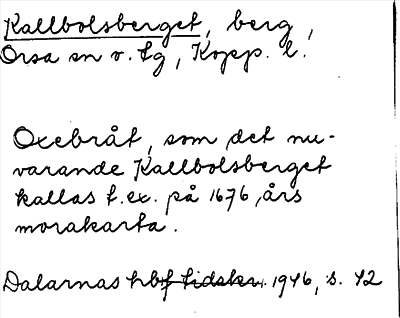 Kallbolsberget, berg,
Orsa sn o. tg, Kopp. l.
Oxebråt, som det nu-
varande Kallbolsberget
kallas t.ex. på 1676, års
morakarta.
Dalarnas hbf tidskr. 1946, s. 42